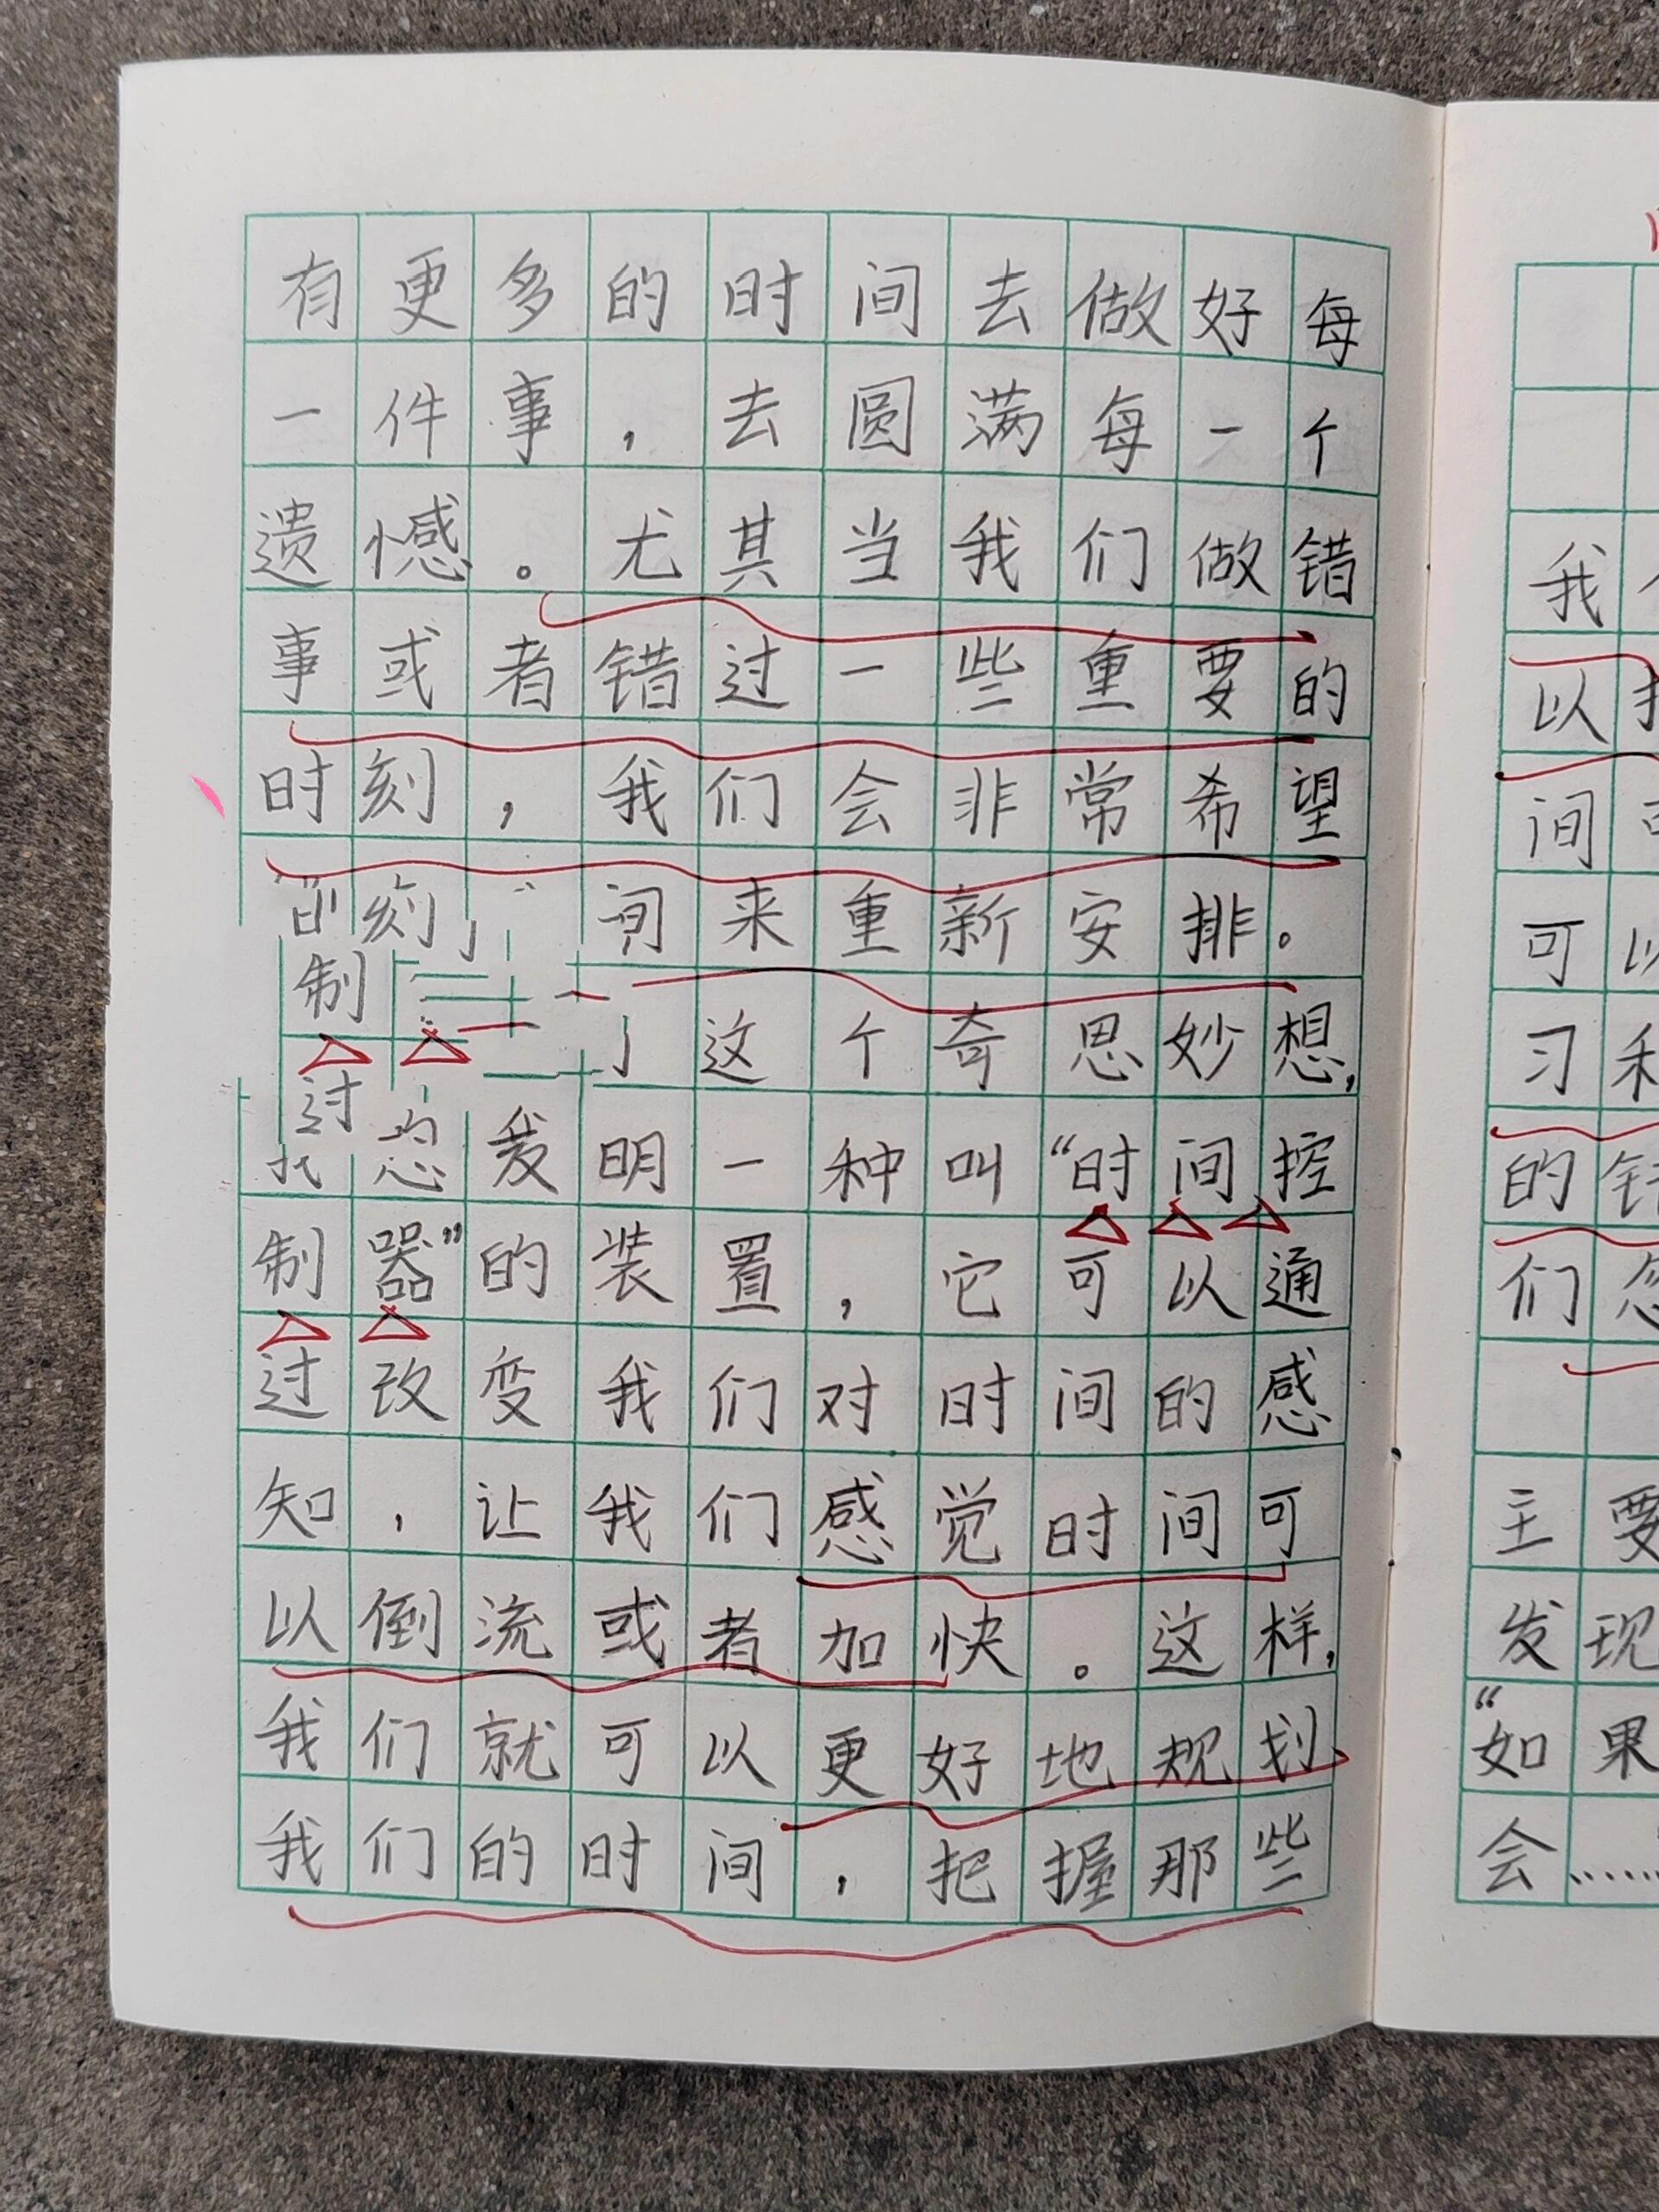 有更多的时间去做好每
一件事，去圆满每一个
遗憾。尤其当我们做错
事或者错过一些重要的
时刻，我们会非常希望
间来重新安排。
制
这个奇思妙想，
过
发明一种叫“时间控
制器”的装置，它可以通
过改变我们对时间的感
知，让我们感觉时间可
以倒流或者加快。这样，
我们就可以更好地规划
我们的时间，把握那些
我
以
间
可以
习
的
们
主要
发现
“如果
会……